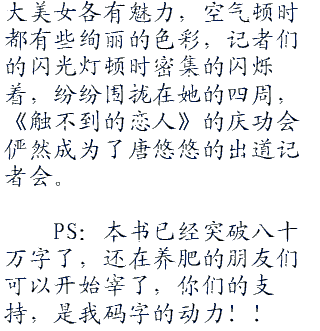 大美女各有魅力，空气顿时
都有些绚丽的色彩，记者们
的闪光灯顿时密集的闪烁
着，纷纷围拢在她的四周，
《触不到的恋人》的庆功会
俨然成为了唐悠悠的出道记
者会。
PS：本书已经突破八十
万字了，还在养肥的朋友们
可以开始宰了，你们的支
持，是我码字的动力！！